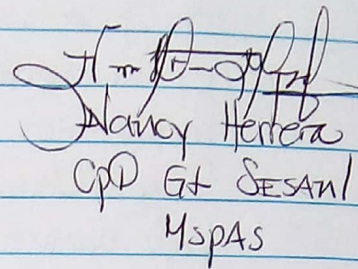 Nancy Herrera
CpD Gt SESAN/
MSPAS